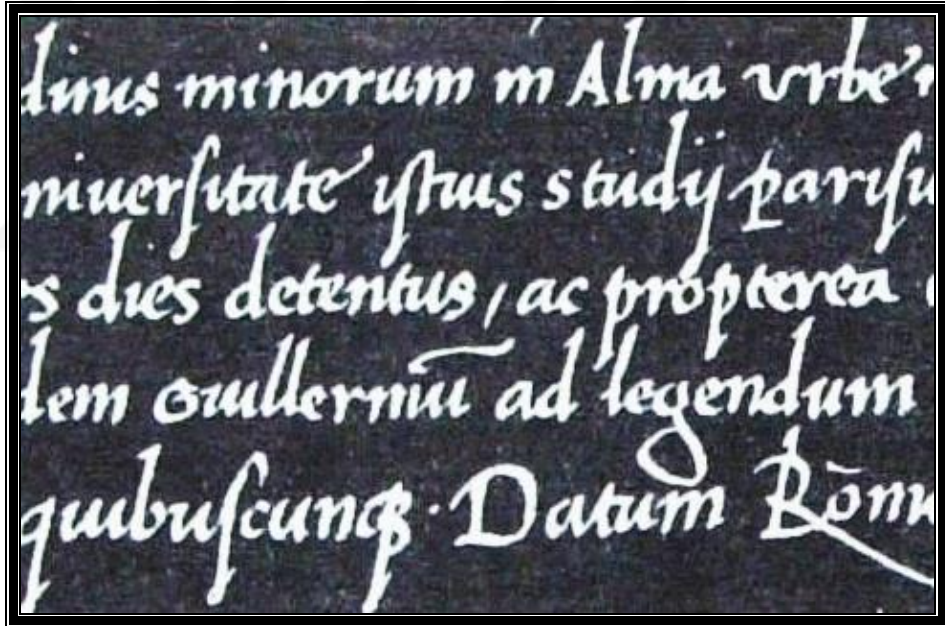 dinus minorum in Alma vrbe
niuersitate istius studij parisi
s dies detentus, ac propterea
dem Guillermū ad legendum
quibuscunqꝫ. Datum Rōm